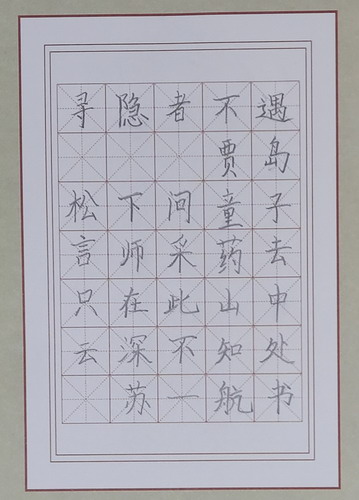 寻隐者不遇
贾岛
松下问童子
言师采药去
只在此山中
云深不知处
苏一航书